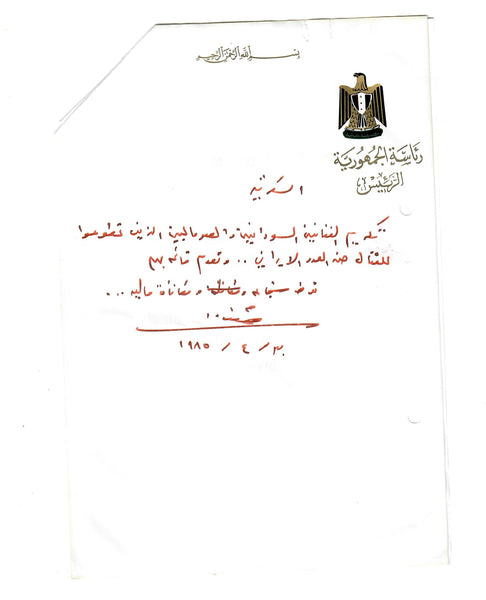 بسم الله الرحمن الرحيم
رئاسة الجمهورية
الرئيس
السكرتير
تكريم الفنانين السودانيين والصوماليين الذين تطوعوا
للقتال ضد العدو الايراني .. وتقدم قائمة بهم
نوط شجاعة ومكافأة مالية ...
١٩٨٥ / ٤ / ٣٠